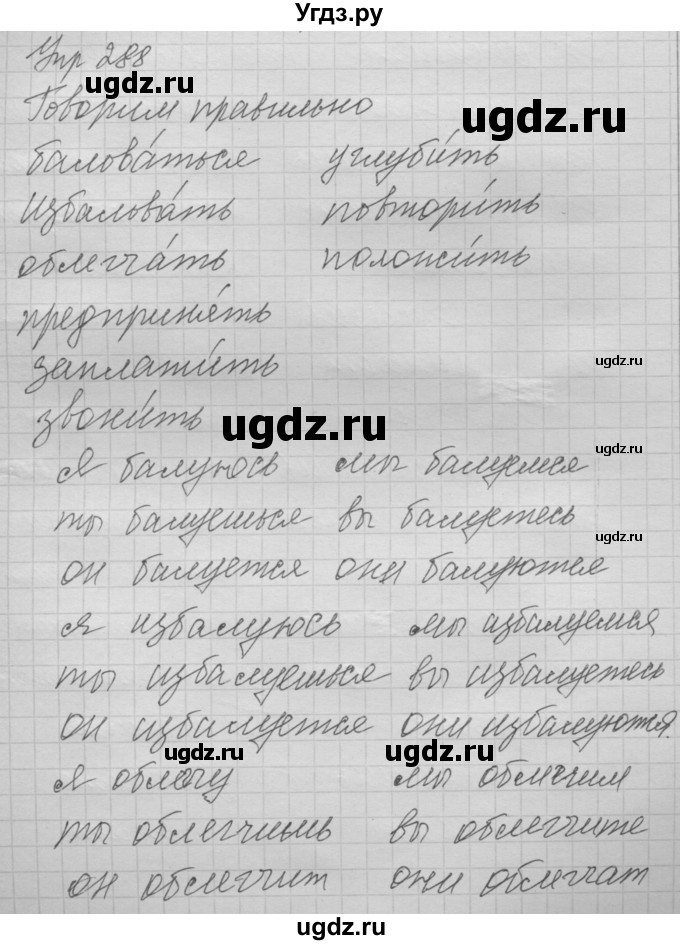 Угдз.ру
Упр 288
ugdz.ru
Говорим правильно
ugdz.ru
балова́ться углуби́ть
Избалова́ть повтори́ть
облегча́ть положи́ть
предприня́ть
заплати́ть
ugdz.ru
звони́ть
ugdz.ru
я балуюсь мы балуемся
ugdz.ru
ты балуешься вы балуетесь
ugdz.ru
он балуется они балуются
я избалуюсь мы избалуемся
ты избалуешься вы избалуетесь
он избалуется они избалуются.
ugdz.ru ugdz.ru
я облегчу мы облегчим
ты облегчишь вы облегчите
он облегчит они облегчат
ugdz.ru